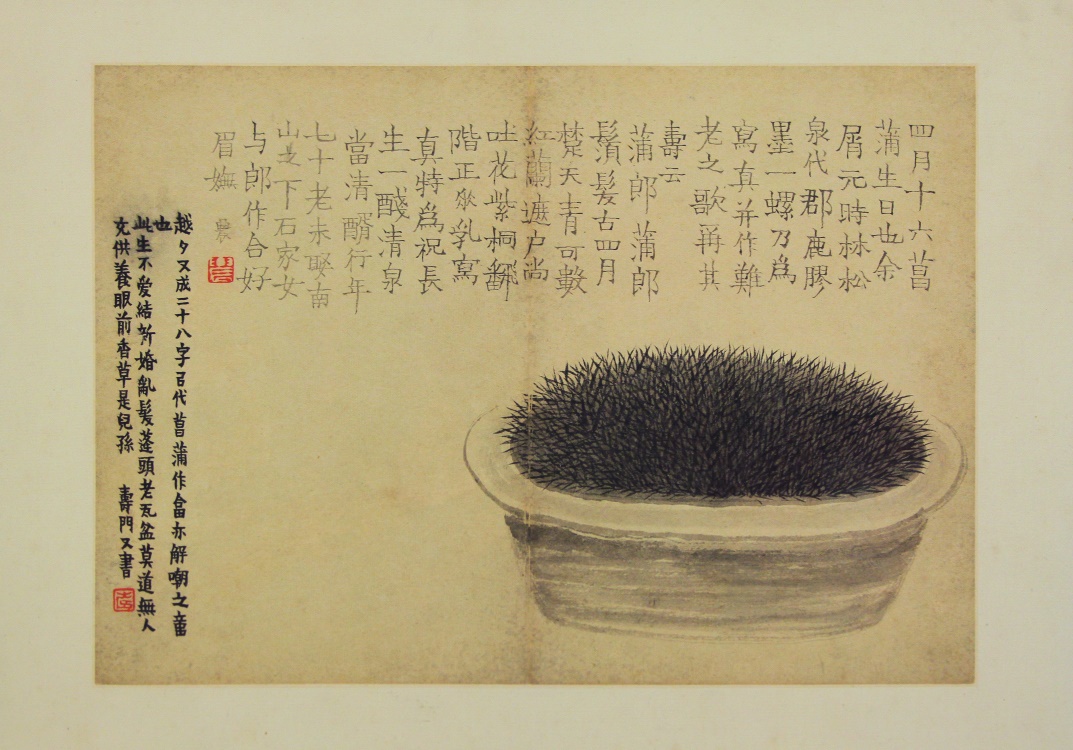 四月十六菖
蒲生日也余
屑元時林松
泉代郡鹿膠
墨一螺乃為
寫真并作難
老之歌稱其
壽云
蒲郎蒲郎
鬚髮古四月
楚天青可數
紅蘭遮户尚
吐花紫桐飜
階正飛乳寫
真特為祝長
生一醆清泉
當清醑行年
七十老未娶南
山之下石家女
与郎作合好
眉嫵 農
越夕又成二十八字召代菖蒲作答亦解嘲之意
也
此生不爱結新婚亂髮蓬頭老瓦盆莫道無人
充供養眼前香草是兒孫 壽門又書